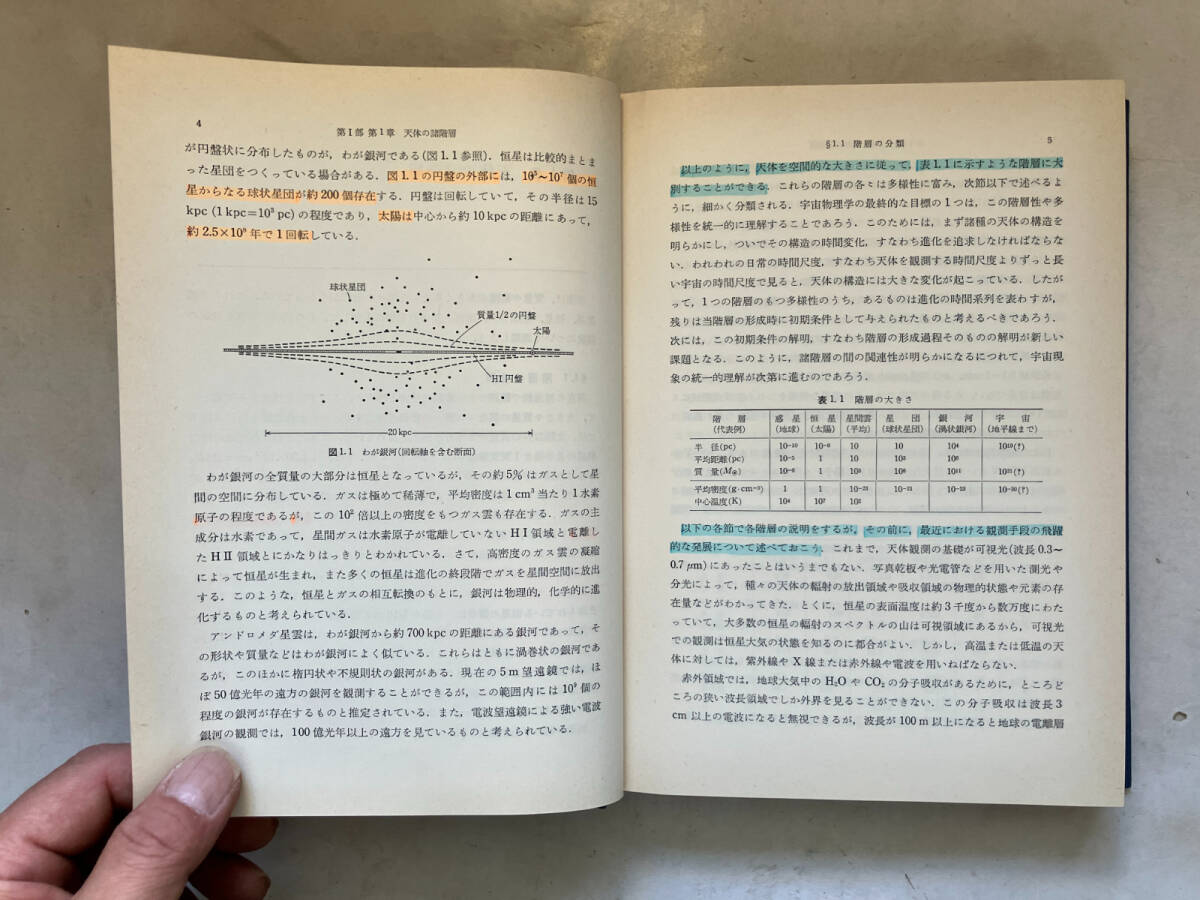 4
第Ⅰ部 第1章 天体の諸階層
が円盤状に分布したものが，わが銀河である(図1.1参照)．恒星は比較的まとま
った星団をつくっている場合がある．図1.1の円盤の外部には，10⁵~10⁷個の恒
星からなる球状星団が約200個存在する．円盤は回転していて，その半径は15
kpc (1 kpc=10³ pc)の程度であり，太陽は中心から約10 kpcの距離にあって，
約2.5×10⁸年で1回転している．
球状星団
質量1/2の円盤
太陽
HI円盤
20 kpc
図1.1 わが銀河(回転軸を含む断面)
わが銀河の全質量の大部分は恒星となっているが，その約5%はガスとして星
間の空間に分布している．ガスは極めて稀薄で，平均密度は1 cm³当たり1水素
原子の程度であるが，この10²倍以上の密度をもつガス雲も存在する．ガスの主
成分は水素であって，星間ガスは水素原子が電離していないHⅠ領域と電離し
たHⅡ領域とにかなりはっきりとわかれている．さて，高密度のガス雲の凝縮
によって恒星が生まれ，また多くの恒星は進化の終段階でガスを星間空間に放出
する．このような，恒星とガスの相互転換のもとに，銀河は物理的，化学的に進
化するものと考えられている．
アンドロメダ星雲は，わが銀河から約700 kpcの距離にある銀河であって，そ
の形状や質量などはわが銀河によく似ている．これらはともに渦巻状の銀河であ
るが，このほかに楕円状や不規則状の銀河がある．現在の5 m望遠鏡では，ほ
ぼ50億光年の遠方の銀河を観測することができるが，この範囲内には10⁹個の
程度の銀河が存在するものと推定されている．また，電波望遠鏡による強い電波
銀河の観測では，100億光年以上の遠方を見ているものと考えられている．
§1.1 階層の分類
5
以上のように，天体を空間的な大きさに従って，表1.1に示すような階層に大
別することができる．これらの階層の各々は多様性に富み，次節以下で述べるよ
うに，細かく分類される．宇宙物理学の最終的な目標の1つは，この階層性や多
様性を統一的に理解することであろう．このためには，まず諸種の天体の構造を
明らかにし，ついでその構造の時間変化，すなわち進化を追求しなければならな
い．われわれの日常の時間尺度，すなわち天体を観測する時間尺度よりずっと長
い宇宙の時間尺度で見ると，天体の構造には大きな変化が起こっている．したが
って，1つの階層のもつ多様性のうち，あるものは進化の時間系列を表わすが，
残りは当階層の形成時に初期条件として与えられたものと考えるべきであろう．
次には，この初期条件の解明，すなわち階層の形成過程そのものの解明が新しい
課題となる．このように，諸階層の間の関連性が明らかになるにつれて，宇宙現
象の統一的理解が次第に進むのであろう．
表1.1 階層の大きさ
階層 惑星 恒星 星間雲 星団 銀河 宇宙
(代表例) (地球) (太陽) (平均) (球状星団) (渦状銀河) (地平線まで)
半径(pc) 10⁻¹⁰ 10⁻⁸ 10 10 10⁴ 10¹⁰(?)
平均距離(pc) 10⁻⁵ 1 10 10³ 10⁶
質量(M⊙) 10⁻⁶ 1 10³ 10⁶ 10¹¹ 10²¹(?)
平均密度(g·cm⁻³) 1 1 10⁻²³ 10⁻²¹ 10⁻²³ 10⁻³⁰(?)
中心温度(K) 10⁴ 10⁷ 10²
以下の各節で各階層の説明をするが，その前に，最近における観測手段の飛躍
的な発展について述べておこう．これまで，天体観測の基礎が可視光(波長0.3~
0.7 μm)にあったことはいうまでもない．写真乾板や光電管などを用いた測光や
分光によって，種々の天体の輻射の放出領域や吸収領域の物理的状態や元素の存
在量などがわかってきた．とくに，恒星の表面温度は約3千度から数万度にわた
っていて，大多数の恒星の輻射のスペクトルの山は可視領域にあるから，可視光
での観測は恒星大気の状態を知るのに都合がよい．しかし，高温または低温の天
体に対しては，紫外線やX線または赤外線や電波を用いねばならない．
赤外領域では，地球大気中のH₂OやCO₂の分子吸収があるために，ところど
ころの狭い波長領域でしか外界を見ることができない．この分子吸収は波長3
cm以上の電波になると無視できるが，波長が100 m以上になると地球の電離層